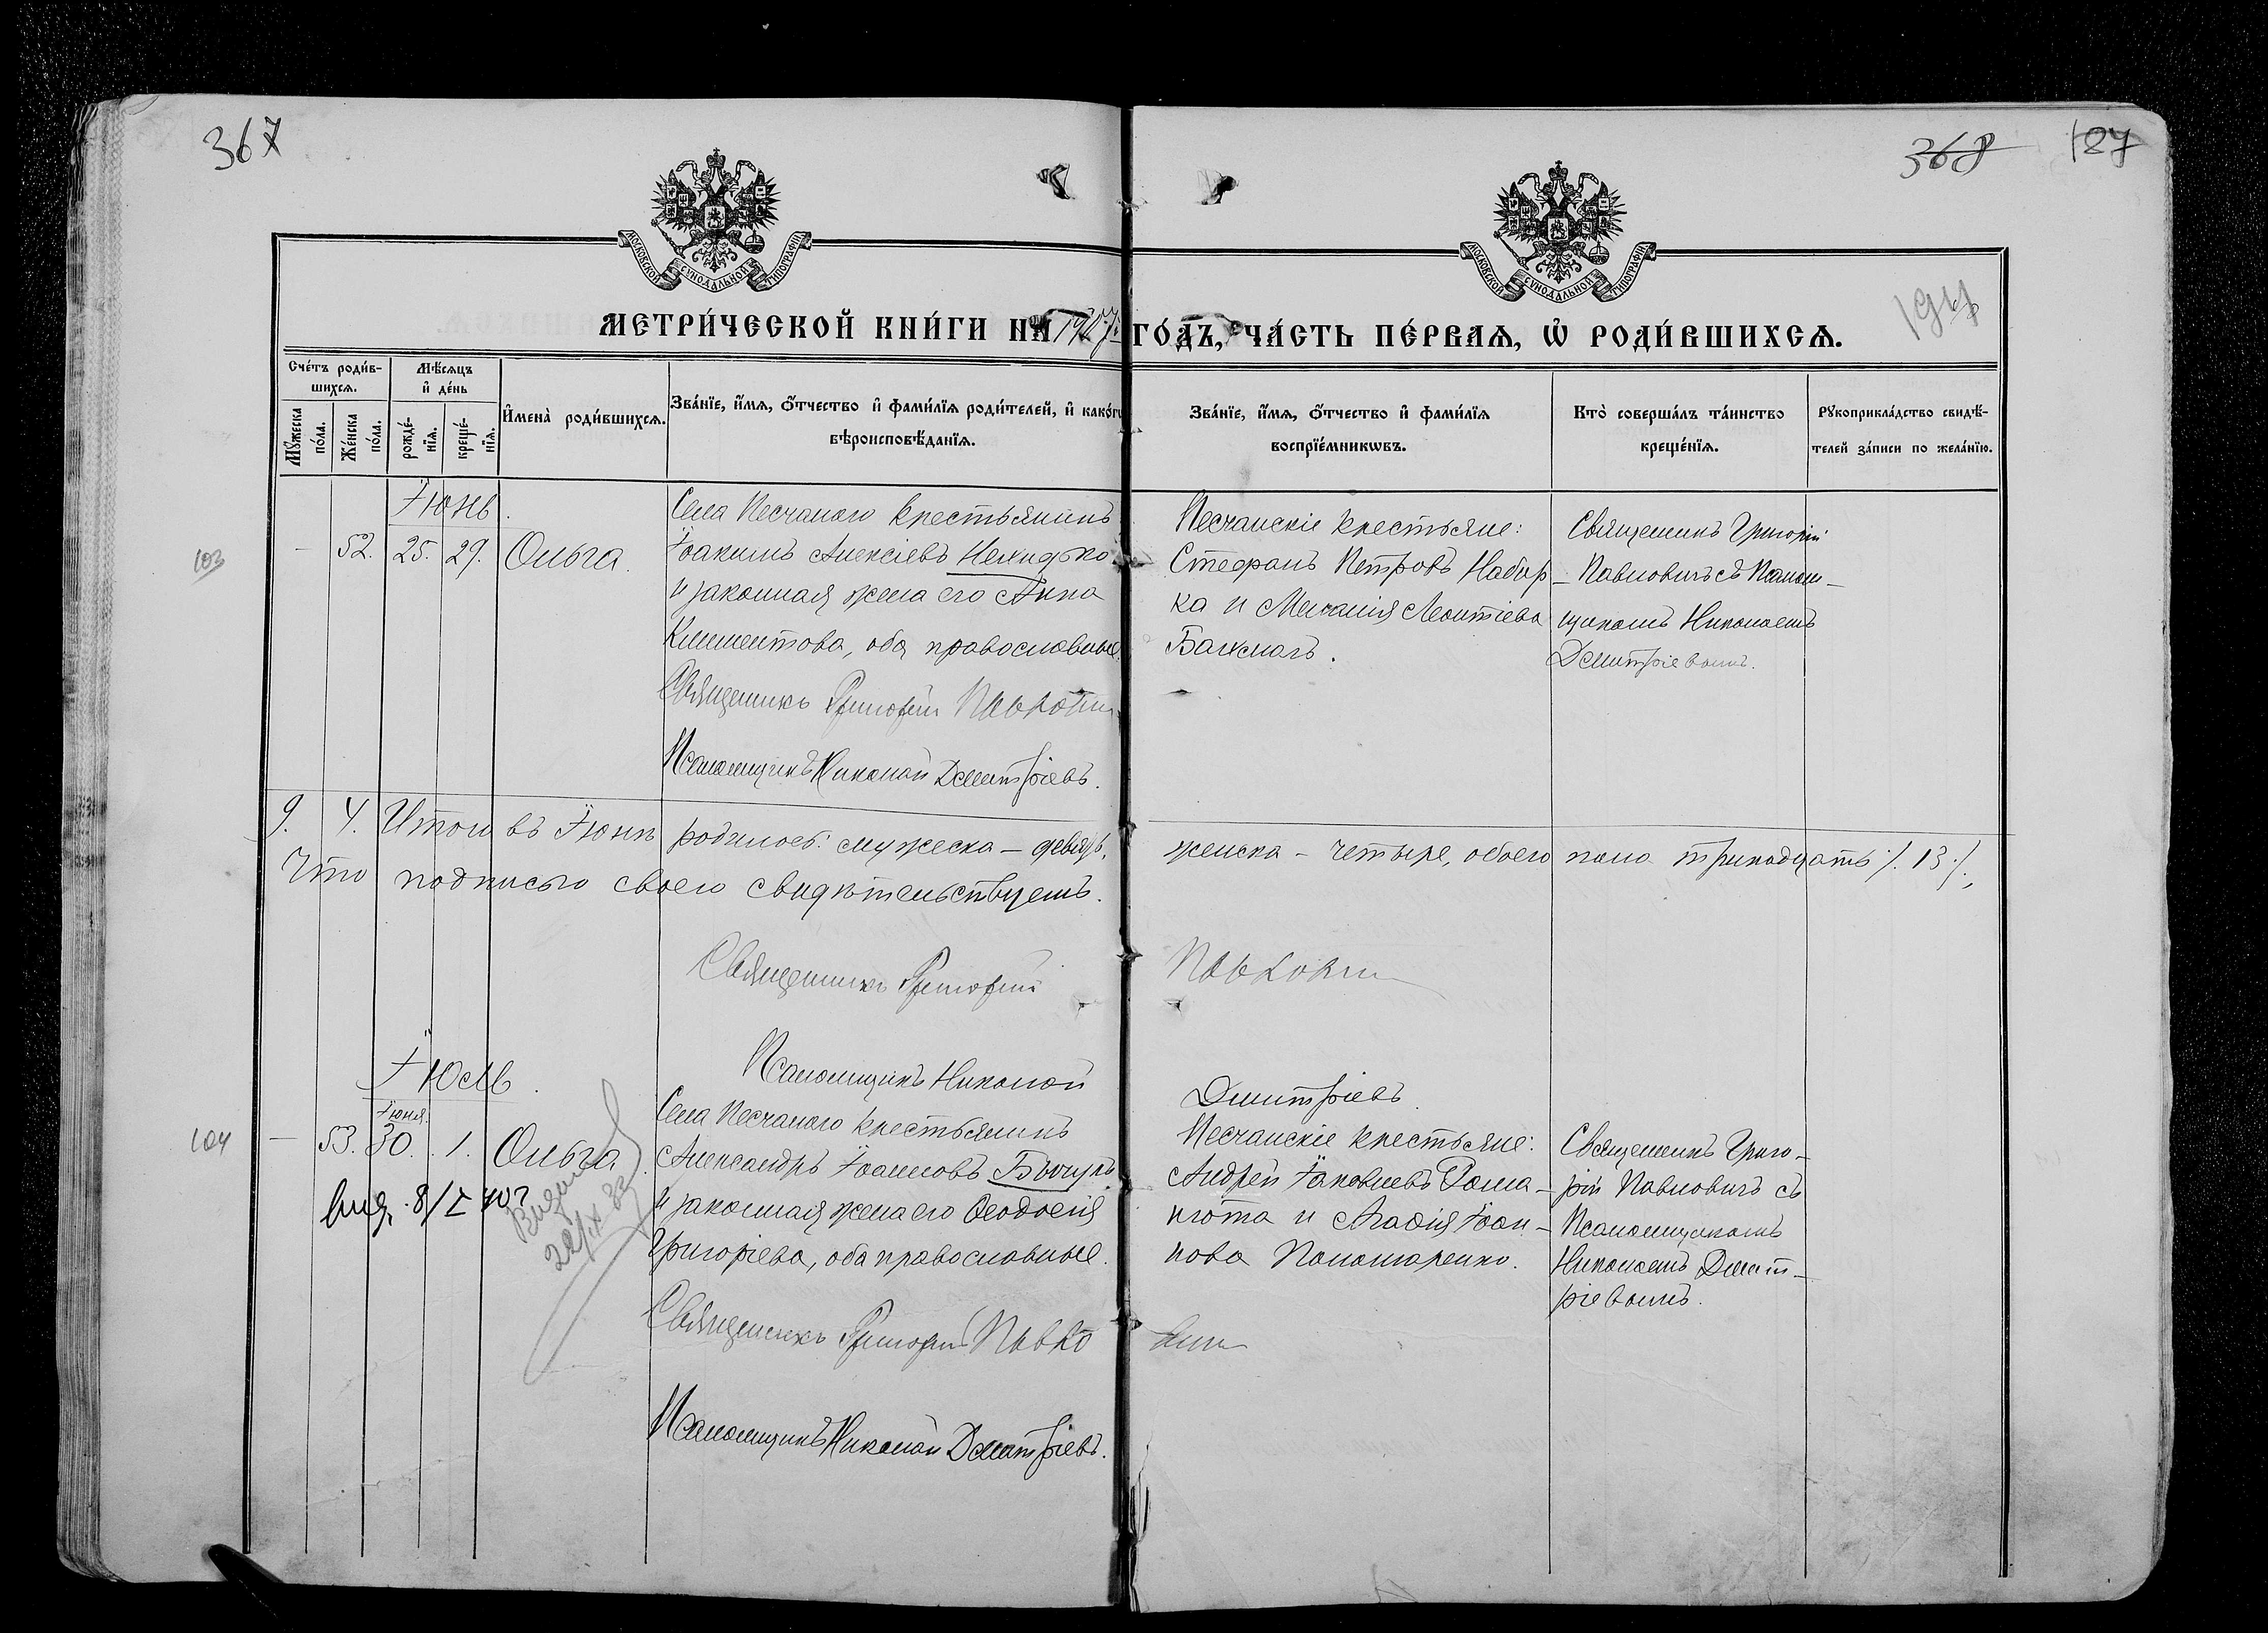 367
368 127
МОСКОВСКОЙ СѴНОДАЛЬНОЙ ТИПОГРАФІИ
МОСКОВСКОЙ СѴНОДАЛЬНОЙ ТИПОГРАФІИ
МЕТРИ́ЧЕСКОЙ КНИ́ГИ НА 1907 ГО́ДЪ, ЧА́СТЬ ПЕ́РВАѦ, Ѡ҆ РОДИ́ВШИХСѦ.
Сче́тъ роди́в-
шихсѧ.
Мꙋ́жеска по́ла.
Же́нска по́ла.
Мѣ́сѧцъ
и҆ де́нь
рожде́-
нїѧ.
креще́-
нїѧ.
И҆мена̀ роди́вшихсѧ.
Зва́нїе, и҆́мѧ, ѻ҆́тчество и҆ фами́лїѧ роди́телей, и҆ како́гѡ
вѣроисповѣ́данїѧ.
Зва́нїе, и҆́мѧ, ѻ҆́тчество и҆ фами́лїѧ
воспрїе́мникѡвъ.
Кто̀ соверша́лъ та́инство
креще́нїѧ.
Рꙋкоприкла́дство свидѣ́-
телей за́писи по жела́нїю.
Іюнь.
103 — 52. 25. 29. Ольга.
Села Песчаного крестьянинъ
Іоакимъ Алексіевъ Нехидько
и законная жена его Анна
Климентова, оба православные.
Священникъ Григорій Павлович
Псаломщикъ Николай Дмитріевъ.
Песчанскіе крестьяне:
Стефанъ Петровъ Набор-
ка и Меланія Леонтіева
Бакжолъ.
Священникъ Григорій
Павловичъ съ Псалом-
щикомъ Николаемъ
Дмитріевымъ.
9. 4. Итого въ Іюнѣ родилось: мужеска — девять, женска — четыре, обоего пола тринадцать /. 13 /.,
Что подписью своею свидѣтельствуемъ.
Священникъ Григорій Павлович
Псаломщикъ Николай Дмитріевъ.
Іюль.
Іюня.
104 — 53. 30. 1. Ольга.
Села Песчаного крестьянинъ
Александръ Іоанновъ Бычукъ
и законная жена его Ѳеодосія
Григоріева, оба православные.
Священникъ Григорій Павлович
Псаломщикъ Николай Дмитріевъ.
Песчанскіе крестьяне:
Андрей Іаковлевъ Рома-
нюта и Агафія Іоан-
нова Пономаренко.
Священникъ Григо-
рій Павловичъ съ
Псаломщикомъ
Николаемъ Дмит-
ріевымъ.